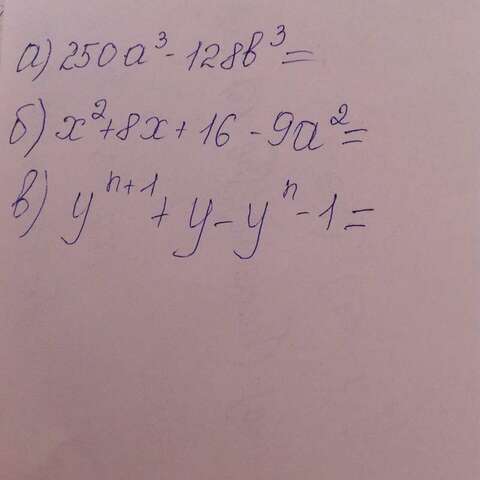 а) 250a³ - 128b³ =
б) x² + 8x + 16 - 9a² =
в) yⁿ⁺¹ + y - yⁿ - 1 =